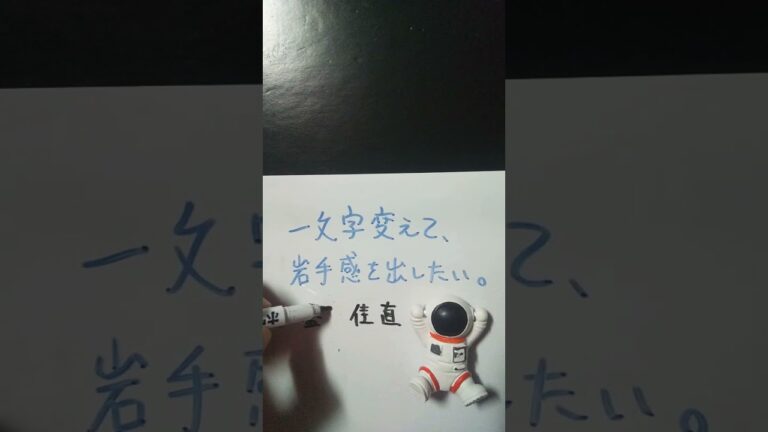 一文字変えて、
岩手感を出したい。
佳直